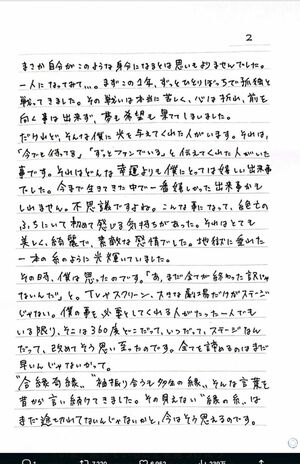 2
まさか自分がこのような身分になるとは思いもよりませんでした。
一人になってみて…。まずこの1年、ずっとひとりぼっちで孤独と
戦ってきました。その戦いは本当に苦しく、心は折れ、前を
向く事は出来ず、夢も希望も果ててしまいました。
だけれど、そんな僕に光を与えてくれた人がいます。それは、
「今でも待ってる」「ずっとファンでいる」と伝えてくれた人がいた
事です。それはどんな幸運よりも僕にとっては嬉しい出来事
でした。今まで生きてきた中で一番嬉しかった出来事かも
しれません。不思議ですよね。こんな事になって、絶望の
ふちにいて初めて感じる気持ちがあった。それはとても
美しく、綺麗で、素敵な感情でした。地獄に垂れた
一本の糸のように光輝いていました。
その時、僕は思ったのです。「あ、まだ全てが終わった訳じゃ
ないんだ」と。TVやスクリーン、大きな劇場だけがステージ
じゃない。僕の事を必要としてくれる人がたった一人でも
いる限り、そこは360度どこだって、いつだって、ステージなん
だって、改めてそう思い至ったのです。全てを諦めるのはまだ
早いんじゃないかって。
“合縁奇縁”、“袖振り合うも多生の縁”、そんな言葉を
昔から言い続けてきました。その見えない“縁の糸”は
まだ途切れてないんじゃないかと、今はそう思えるのです。
1
7,220
6,952